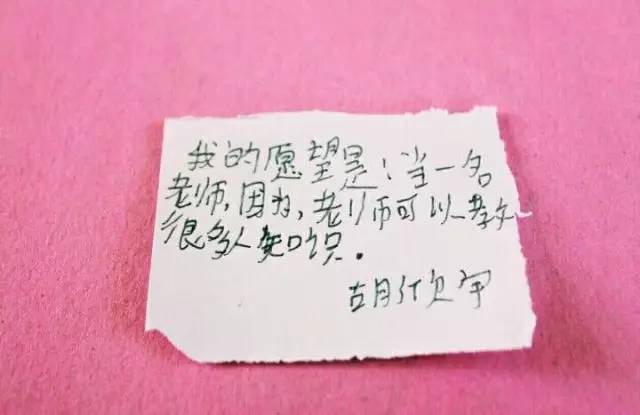 我的愿望是:当一名
老师,因为,老师可以教
很多人知识.